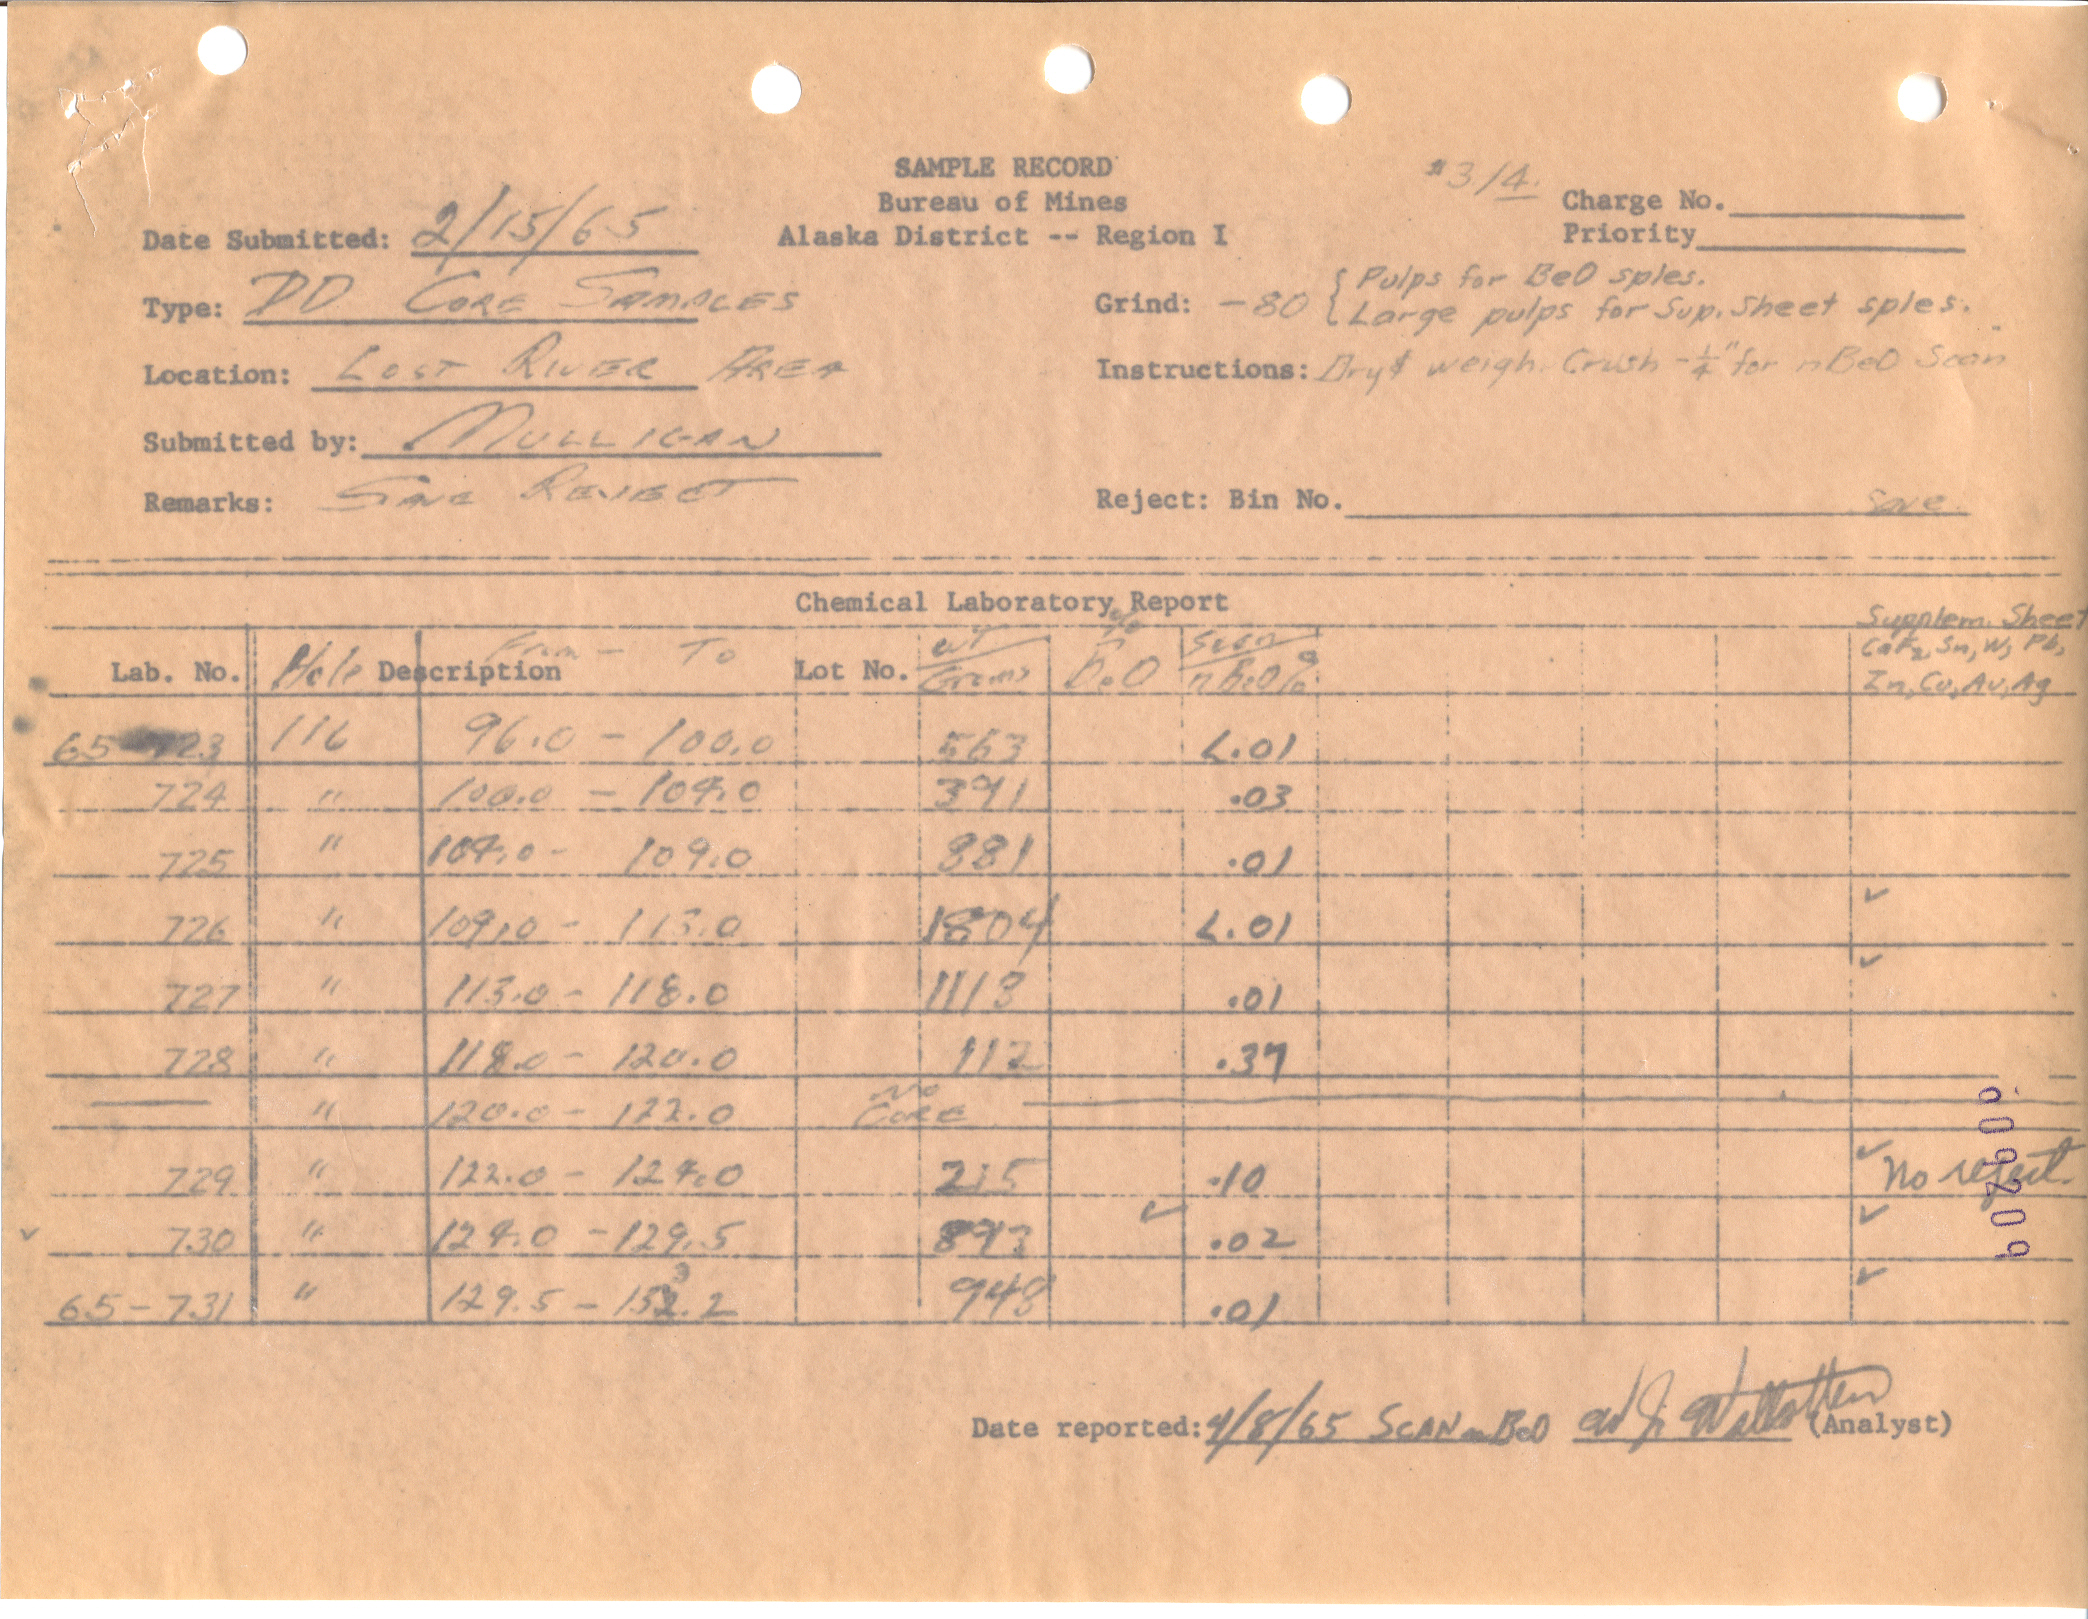 SAMPLE RECORD
#3/4.
Bureau of Mines
Charge No.
Date Submitted: 2/15/65
Alaska District -- Region I
Priority
Type: DD CORE SAMPLES
Grind: -80 { Pulps for BeO sples.
Large pulps for Sup. Sheet sples.
Location: LOST RIVER AREA
Instructions: Dry & weigh. Crush -1/4" for nBeO Scan
Submitted by: MULLIGAN
Remarks: SAVE REJECT
Reject: Bin No. Save
Chemical Laboratory Report
Supplem. Sheet
Lab. No. Hole Description From - To Lot No. wt/Grams % BeO Scan/nBeO% CaF2, Sn, W, Pb,
Zn, Cu, Au, Ag
65-723 116 96.0 - 100.0 563 <.01
724 " 100.0 - 104.0 391 .03
725 " 104.0 - 109.0 881 .01
726 " 109.0 - 113.0 1804 <.01 ✓
727 " 113.0 - 118.0 1113 .01 ✓
728 " 118.0 - 120.0 112 .37
— " 120.0 - 122.0 NO CORE
729 " 122.0 - 124.0 215 .10 ✓ No reject
✓ 730 " 124.0 - 129.5 893 ✓ .02 ✓
65-731 " 129.5 - 132.2 948 .01 ✓
Date reported: 4/8/65 SCAN nBeO (Analyst)